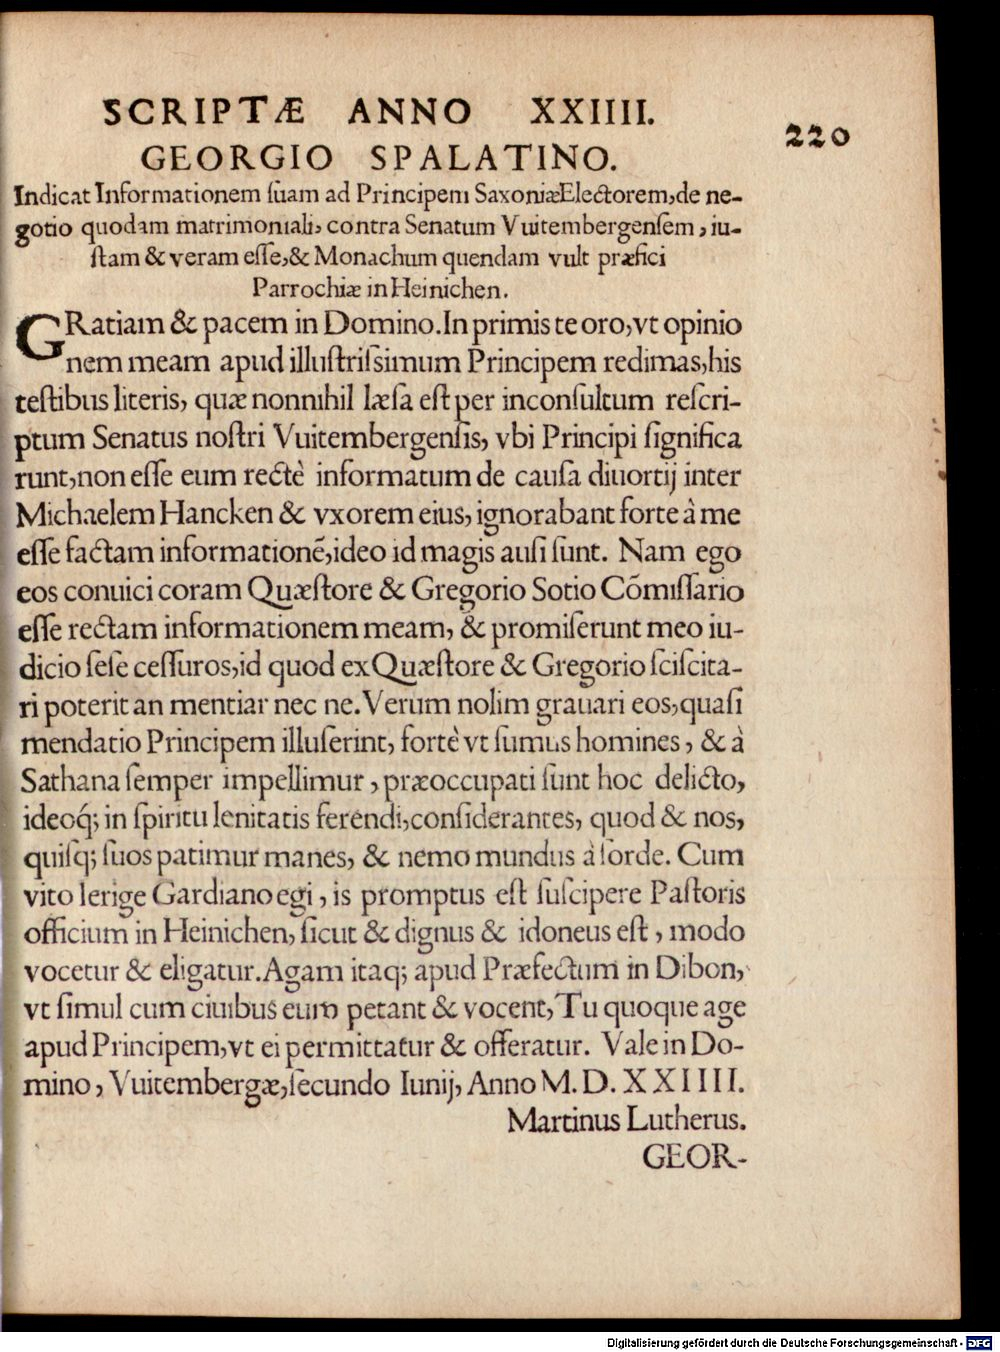 SCRIPTÆ ANNO XXIIII.
220
GEORGIO SPALATINO.
Indicat Informationem ſuam ad Principem SaxoniæElectorem,de ne-
gotio quodam matrimoniali, contra Senatum Vuitembergenſem, iu-
ſtam & veram eſſe,& Monachum quendam vult præfici
Parrochiæ in Heinichen.
GRatiam & pacem in Domino.In primis te oro,vt opinio
nem meam apud illuſtriſsimum Principem redimas,his
teſtibus literis, quæ nonnihil læſa eſt per inconſultum reſcri-
ptum Senatus noſtri Vuitembergenſis, vbi Principi ſignifica
runt,non eſſe eum rectè informatum de cauſa diuortij inter
Michaelem Hancken & vxorem eius, ignorabant forte à me
eſſe factam informationē,ideo id magis auſi ſunt. Nam ego
eos conuici coram Quæſtore & Gregorio Sotio Cōmiſſario
eſſe rectam informationem meam, & promiſerunt meo iu-
dicio ſeſe ceſſuros,id quod ex Quæſtore & Gregorio ſciſcita-
ri poterit an mentiar nec ne.Verum nolim grauari eos,quaſi
mendatio Principem illuſerint, fortè vt ſumus homines, & à
Sathana ſemper impellimur, præoccupati ſunt hoc delicto,
ideoq́; in ſpiritu lenitatis ferendi,conſiderantes, quod & nos,
quiſq; ſuos patimur manes, & nemo mundus à ſorde. Cum
vito lerige Gardiano egi, is promptus eſt ſuſcipere Paſtoris
officium in Heinichen, ſicut & dignus & idoneus eſt, modo
vocetur & eligatur.Agam itaq; apud Præfectum in Dibon,
vt ſimul cum ciuibus eum petant & vocent,Tu quoque age
apud Principem,vt ei permittatur & offeratur. Vale in Do-
mino, Vuitembergæ,ſecundo Iunij, Anno M. D. XXIIII.
Martinus Lutherus.
GEOR-
Digitalisierung gefördert durch die Deutsche Forschungsgemeinschaft - DFG